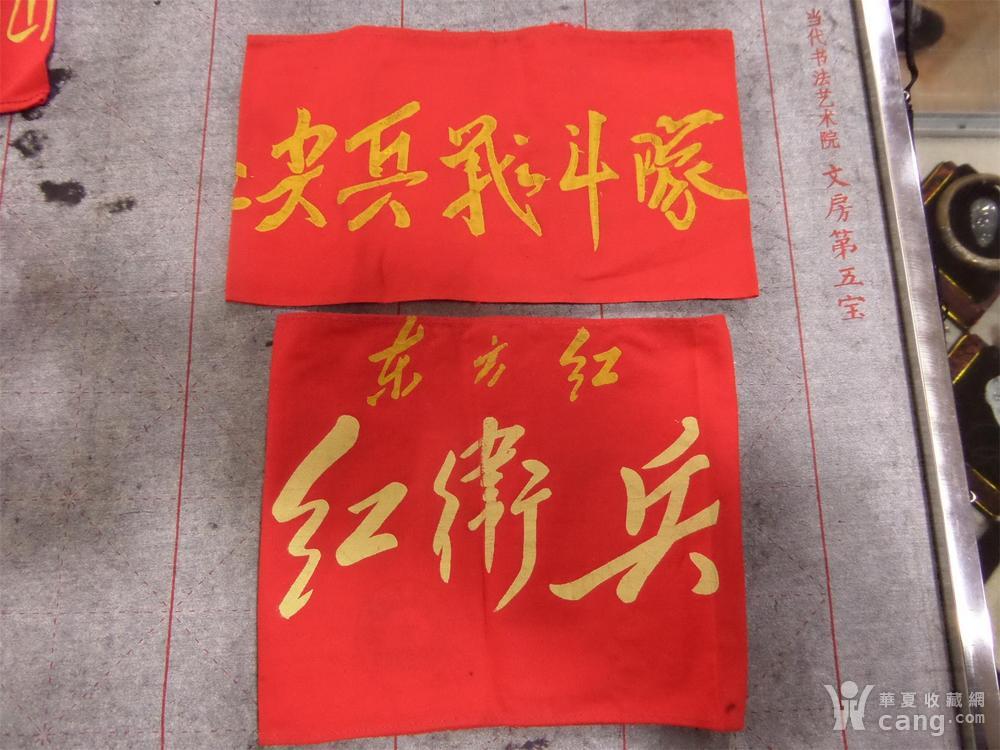 尖兵战斗隊
东方红
红衛兵
当代书法艺术院 文房第五宝
華夏收藏網
cang.com